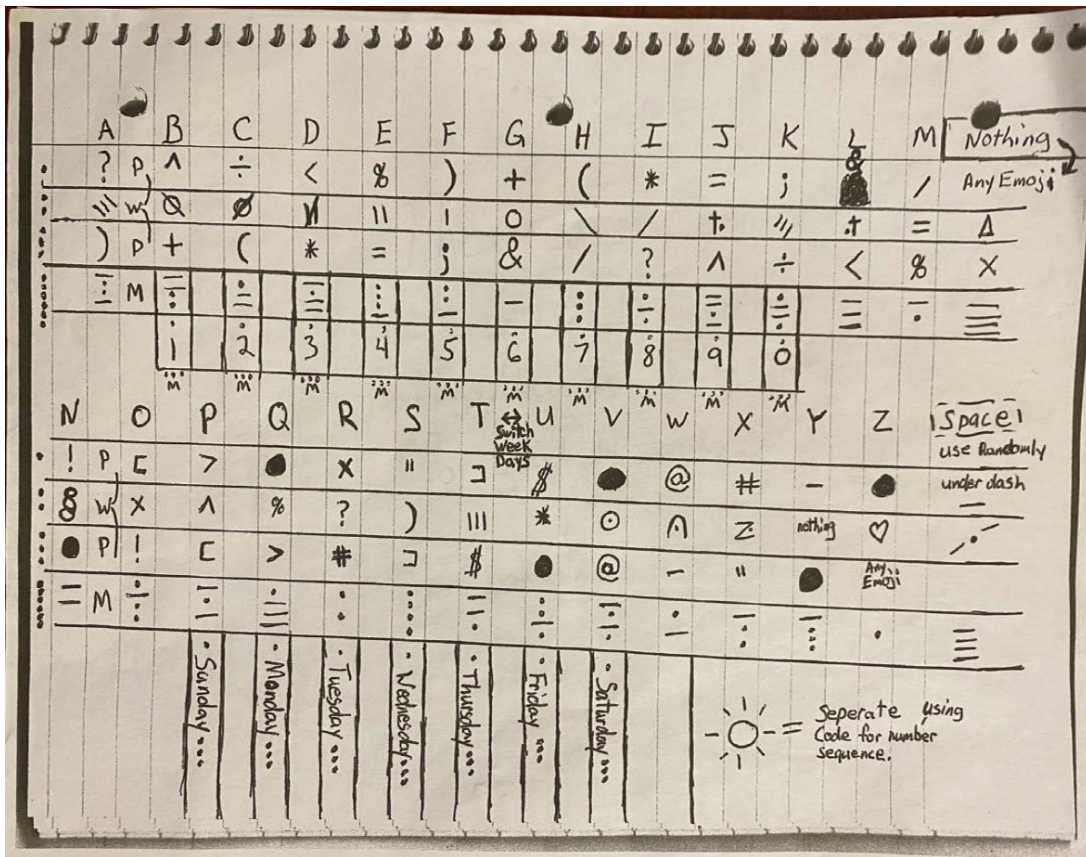 A B C D E F G H I J K L M Nothing
? P ^ ÷ < % ) + ( * = ; & / Any Emoji
W O \ / =  Δ
) P + ( * = ; & / ? ^ ÷ < % X
M
1 2 3 4 5 6 7 8 9 0
M M M M M M M M M M
N O P Q R S T ↔ U V W X Y Z Space
Switch
Week
Days
use Randomly
! P [ > ● X " ] $ ● @ # – ● under dash
8 W X ^ % ? ) ||| * ⊙ Z nothing ♡
● P ! [ > # ] $ ● @ – " ● Any
Emoji
= M
Sunday...
Monday...
Tuesday...
Wednesday...
Thursday...
Friday...
Saturday...
= Seperate using
Code for number
sequence.